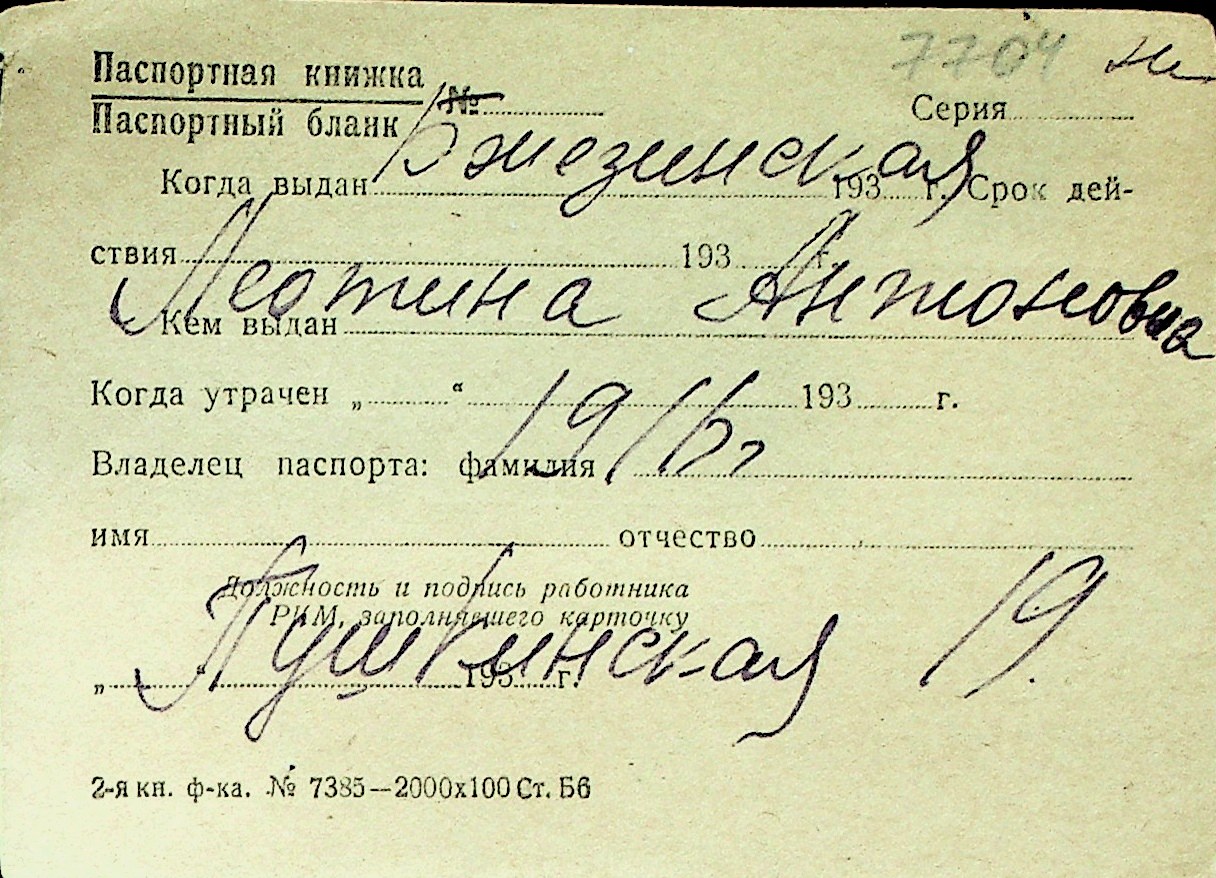 7704
Паспортная книжка
Паспортный бланк № Серия
Бжезинская
Когда выдан 193 г. Срок дей-
ствия 193 г.
Леотина Антоновна
Кем выдан
Когда утрачен „ “ 193 г.
1916 г
Владелец паспорта: фамилия
имя отчество
Должность и подпись работника
РКМ, заполнявшего карточку
Пушкинская 19.
„ “ 193 г.
2-я кн. ф-ка. № 7385—2000х100 Ст. Б6